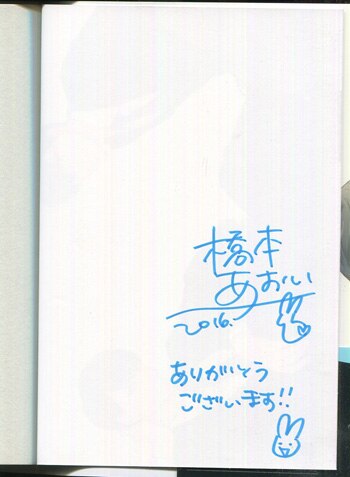 橋本
あおい
2016.
ありがとう
ございます!!